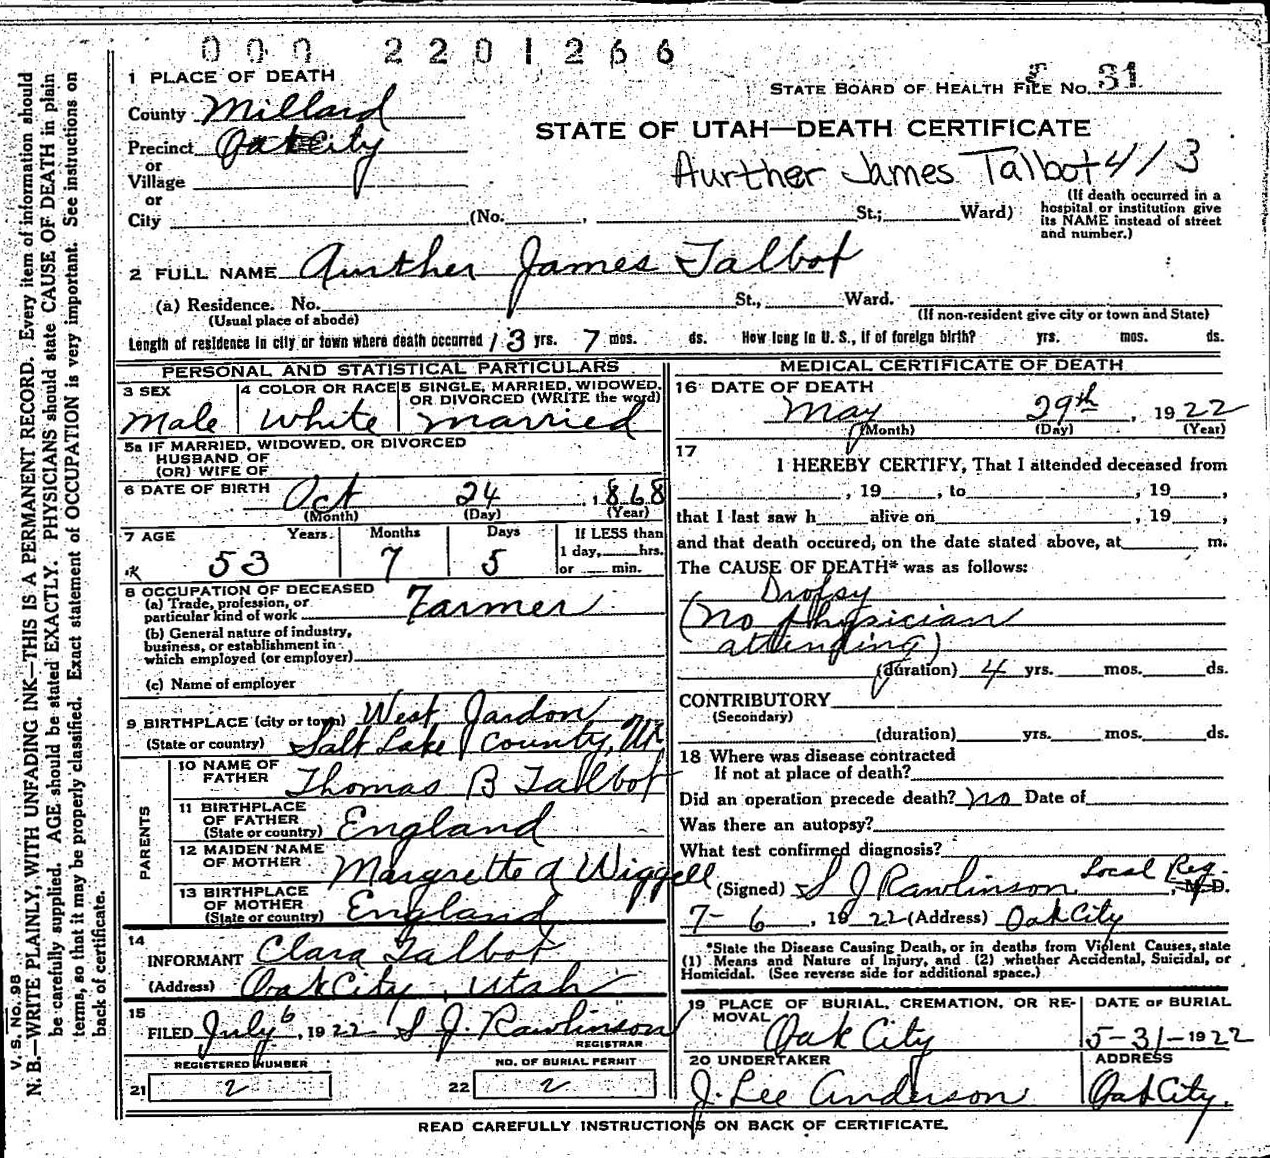 000 2201266
1 PLACE OF DEATH
STATE BOARD OF HEALTH FILE No. 31
County Millard
STATE OF UTAH—DEATH CERTIFICATE
Precinct Oak City
Aurther James Talbot 4/3
or
Village
or
City (No. , St.; Ward)
(If death occurred in a hospital or institution give its NAME instead of street and number.)
2 FULL NAME Aurther James Talbot
(a) Residence. No. St., Ward.
(Usual place of abode) (If non-resident give city or town and State)
Length of residence in city or town where death occurred 13 yrs. 7 mos. ds. How long in U. S., if of foreign birth? yrs. mos. ds.
PERSONAL AND STATISTICAL PARTICULARS
3 SEX
Male
4 COLOR OR RACE
White
5 SINGLE, MARRIED, WIDOWED, OR DIVORCED (WRITE the word)
Married
5a IF MARRIED, WIDOWED, OR DIVORCED
HUSBAND OF
(OR) WIFE OF
6 DATE OF BIRTH Oct 24, 1868
(Month) (Day) (Year)
7 AGE Years Months Days If LESS than
53 7 5 1 day, hrs.
or min.
8 OCCUPATION OF DECEASED
(a) Trade, profession, or
particular kind of work Farmer
(b) General nature of industry,
business, or establishment in
which employed (or employer)
(c) Name of employer
9 BIRTHPLACE (city or town) West Jardon,
(State or country) Salt Lake County, Ut
PARENTS
10 NAME OF FATHER Thomas B Talbot
11 BIRTHPLACE OF FATHER (State or country) England
12 MAIDEN NAME OF MOTHER Margrette A Wiggell
13 BIRTHPLACE OF MOTHER (State or country) England
14
INFORMANT Clara Talbot
(Address) Oak City, Utah
15
FILED July 6, 1922 S J. Rawlinson
REGISTRAR
REGISTERED NUMBER NO. OF BURIAL PERMIT
21 2 22 2
MEDICAL CERTIFICATE OF DEATH
16 DATE OF DEATH
May 29th, 1922
(Month) (Day) (Year)
17
I HEREBY CERTIFY, That I attended deceased from
, 19 , to , 19 ,
that I last saw h alive on , 19 ,
and that death occured, on the date stated above, at m.
The CAUSE OF DEATH* was as follows:
Dropsy
(No physician
attending)
(duration) 4 yrs. mos. ds.
CONTRIBUTORY
(Secondary)
(duration) yrs. mos. ds.
18 Where was disease contracted
If not at place of death?
Did an operation precede death? No Date of
Was there an autopsy?
What test confirmed diagnosis?
(Signed) S J Rawlinson Local Reg., M.D.
7-6, 1922 (Address) Oak City
*State the Disease Causing Death, or in deaths from Violent Causes, state
(1) Means and Nature of Injury, and (2) whether Accidental, Suicidal, or
Homicidal. (See reverse side for additional space.)
19 PLACE OF BURIAL, CREMATION, OR REMOVAL
Oak City
DATE OF BURIAL
5-31-1922
20 UNDERTAKER
J. Lee Anderson
ADDRESS
Oak City.
READ CAREFULLY INSTRUCTIONS ON BACK OF CERTIFICATE.
V. S. NO. 98
N. B.—WRITE PLAINLY, WITH UNFADING INK—THIS IS A PERMANENT RECORD. Every item of information should
be carefully supplied. AGE should be stated EXACTLY. PHYSICIANS should state CAUSE OF DEATH in plain
terms, so that it may be properly classified. Exact statement of OCCUPATION is very important. See instructions on
back of certificate.